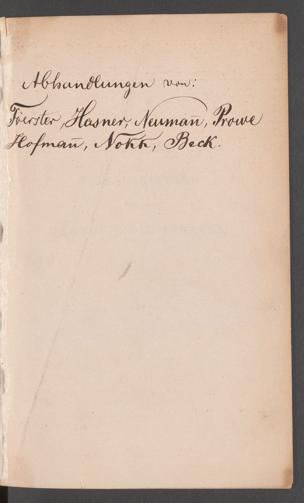 Abhandlungen von:
Foerster, Hasner, Neumañ, Prowe
Hofmañ, Nokk, Beck.